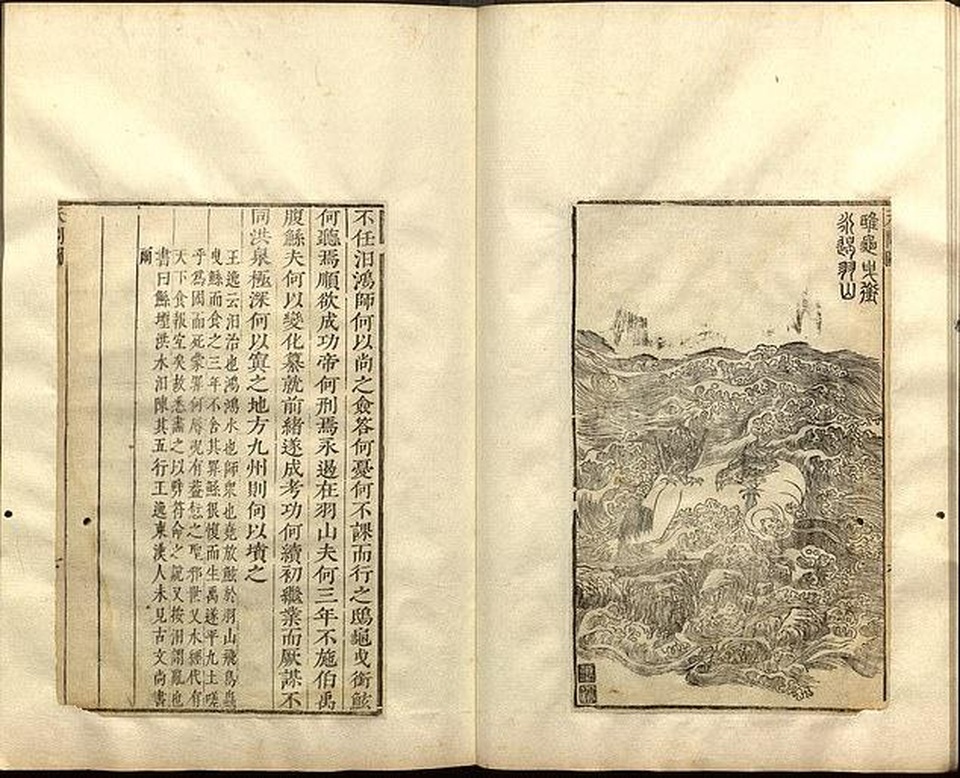 鴟龜曳銜
永遏羽山
不任汨鴻師何以尚之僉答何憂何不課而行之鴟龜曳銜鮌
何聽焉順欲成功帝何刑焉永遏在羽山夫何三年不施伯禹
腹鯀夫何以變化纂就前緒遂成考功何續初繼業而厥謀不
同洪泉極深何以窴之地方九州則何以墳之
王逸云汨治也鴻鴻水也師衆也堯放鮌於羽山飛鳥蟲
曳鯀而食之三年不舍其罪鯀很愎而生禹遂平九土嗟
乎爲國而死蒙罪何辱况有蓋愆之聖邪世又水經代有
天下食報宜矣故悉畫之以符命之說又按汨謂亂也
書曰鯀堙洪水汨陳其五行王逸東漢人未見古文尚書
爾